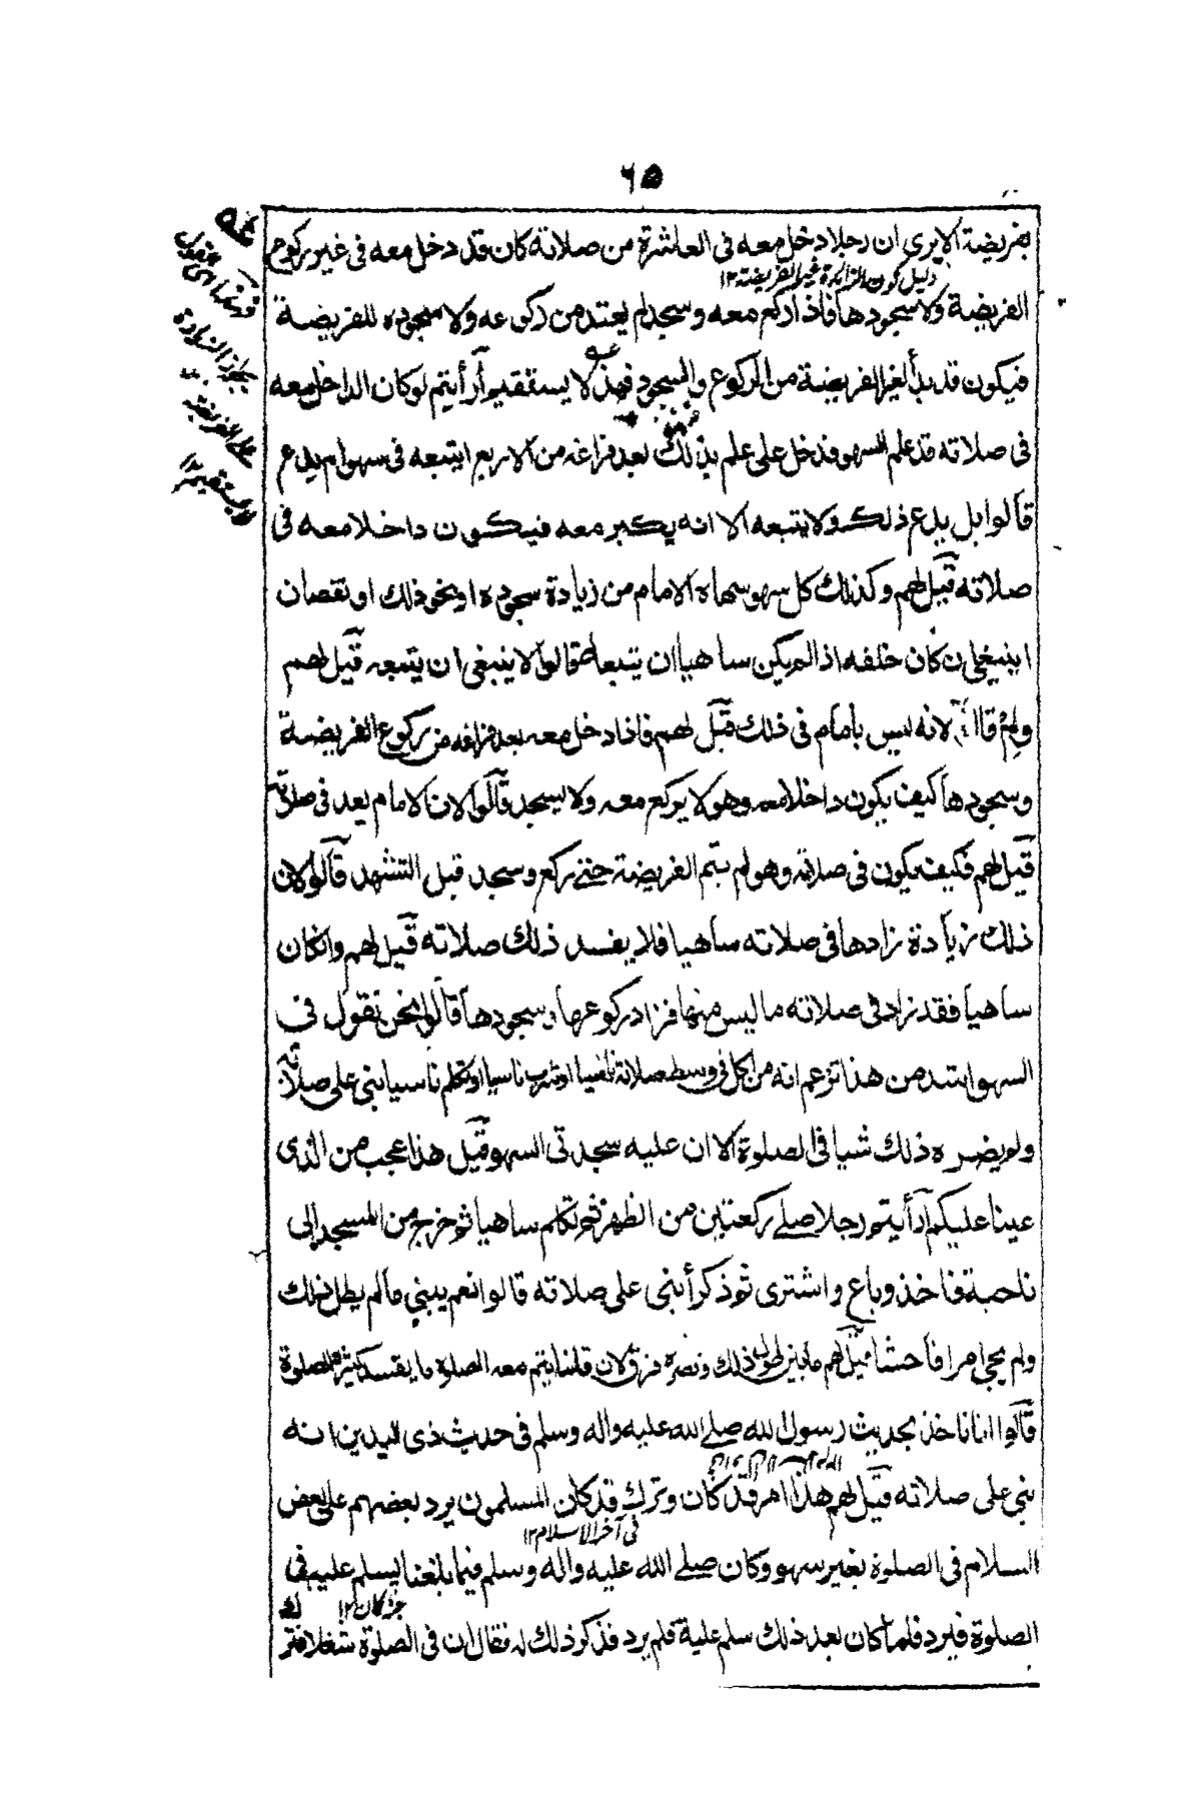 ٦٥
بفريضة الا يرى ان رجلا دخل معه فى العاشرة من صلاته كان قد دخل معه فى غير ركوع
دليل كون الزائدة غير الفريضة ١٢
الفريضة ولا سجودها فاذا ركع معه وسجد لم يعتد من ركوعه ولا سجوده للفريضة
فيكون قد بدأ لغير الفريضة من الركوع والسجود فهذا لا يستقيم أرأيتم لو كان الداخل معه
فى صلاته قد علم السهو فدخل على علم بذلك بعد فراغه من الاربع ايتبعه فى سهوه ام يدع
قالوا بل يدع ذلك ولا يتبعه الا انه يكبر معه فيكون داخلا معه فى
صلاته قيل لهم وكذلك كل سهو سهاه الامام من زيادة سجوده او نحو ذلك او نقصان
اينبغى لمن كان خلفه اذا لم يكن ساهيا ان يتبعه قالوا لا ينبغى ان يتبعه قيل لهم
ولم قالوا لانه ليس بامام فى ذلك قيل لهم فاذا دخل معه بعد فراغه من ركوع الفريضة
وسجودها كيف يكون داخلا معه وهو لا يركع معه ولا يسجد قالوا لان الامام بعد فى صلاته
قيل لهم فكيف يكون فى صلاته وهو لم يتم الفريضة حتى ركع وسجد قبل التشهد قالوا لان
ذلك زيادة زادها فى صلاته ساهيا فلا يفسد ذلك صلاته قيل لهم وان كان
ساهيا فقد زاد فى صلاته ما ليس منها فزاد ركوعها وسجودها قالوا نحن نقول فى
السهو اشد من هذا نزعم انه من اكل فى وسط صلاته ناسيا او شرب ناسيا او تكلم ناسيا بنى على صلاته
ولم يضره ذلك شيا فى الصلوة الا ان عليه سجدتى السهو قيل هذا عجب من الذى
عبنا عليكم أرأيتم رجلا صلى ركعتين من الظهر ثم تكلم ساهيا ثم خرج من المسجد الى
ناحية فاخذ وباع واشترى ثم ذكر أيبنى على صلاته قالوا نعم يبنى ما لم يطل ذلك
ولم يجئ امرا فاحشا قيل لهم ما بين طول ذلك وقصره فرق لان قليل ما يتم معه الصلوة ما يفسد كثيره الصلوة
قالوا انا ناخذ بحديث رسول الله صلى الله عليه واله وسلم فى حديث ذى اليدين انه
بنى على صلاته قيل لهم هذا امر قد كان وترك قد كان المسلمون يرد بعضهم على بعض
فى آخر الاسلام ١٢
السلام فى الصلوة بغير سهو وكان صلى الله عليه واله وسلم فيما بلغنا ليسلم عليه فى
الصلوة فيرد فلما كان بعد ذلك سلم عليه فلم يرد فذكر ذلك له فقال ان فى الصلوة شغلا فتر